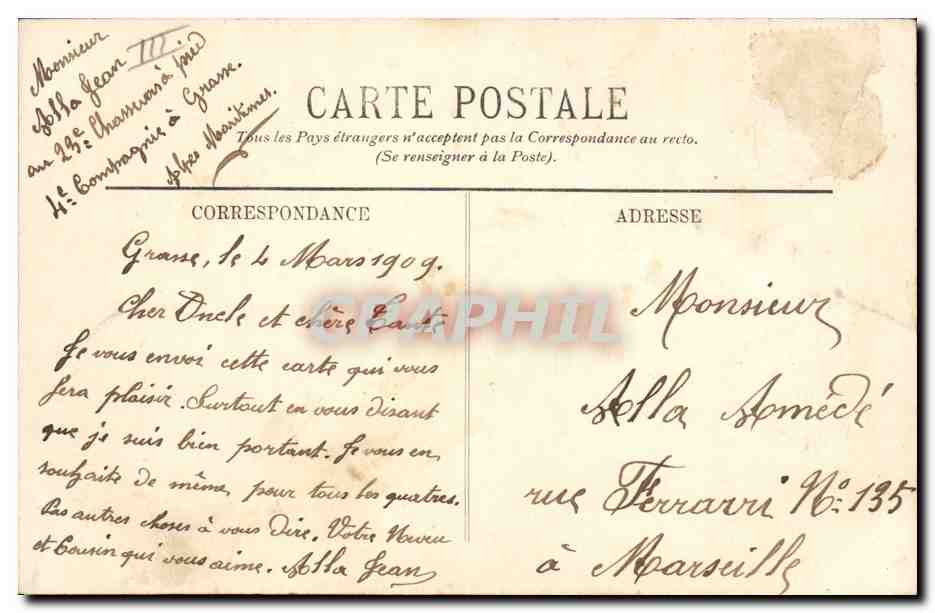 Monsieur
Alla Jean III
au 23e Chasseurs à pied
4e Compagnie à Grasse.
Alpes Maritimes.
CARTE POSTALE
Tous les Pays étrangers n'acceptent pas la Correspondance au recto.
(Se renseigner à la Poste).
CORRESPONDANCE
Grasse, le 4 Mars 1909.
Cher Oncle et chère Tante
Je vous envoi cette carte qui vous
fera plaisir. Surtout en vous disant
que je suis bien portant. Je vous en
souhaite de même, pour tous les quatres.
Pas autres choses à vous dire. Votre Neveu
et Cousin qui vous aime. Alla Jean
ADRESSE
Monsieur
Alla Amédé
rue Ferrarri No. 135
à Marseille
CPAPHIL